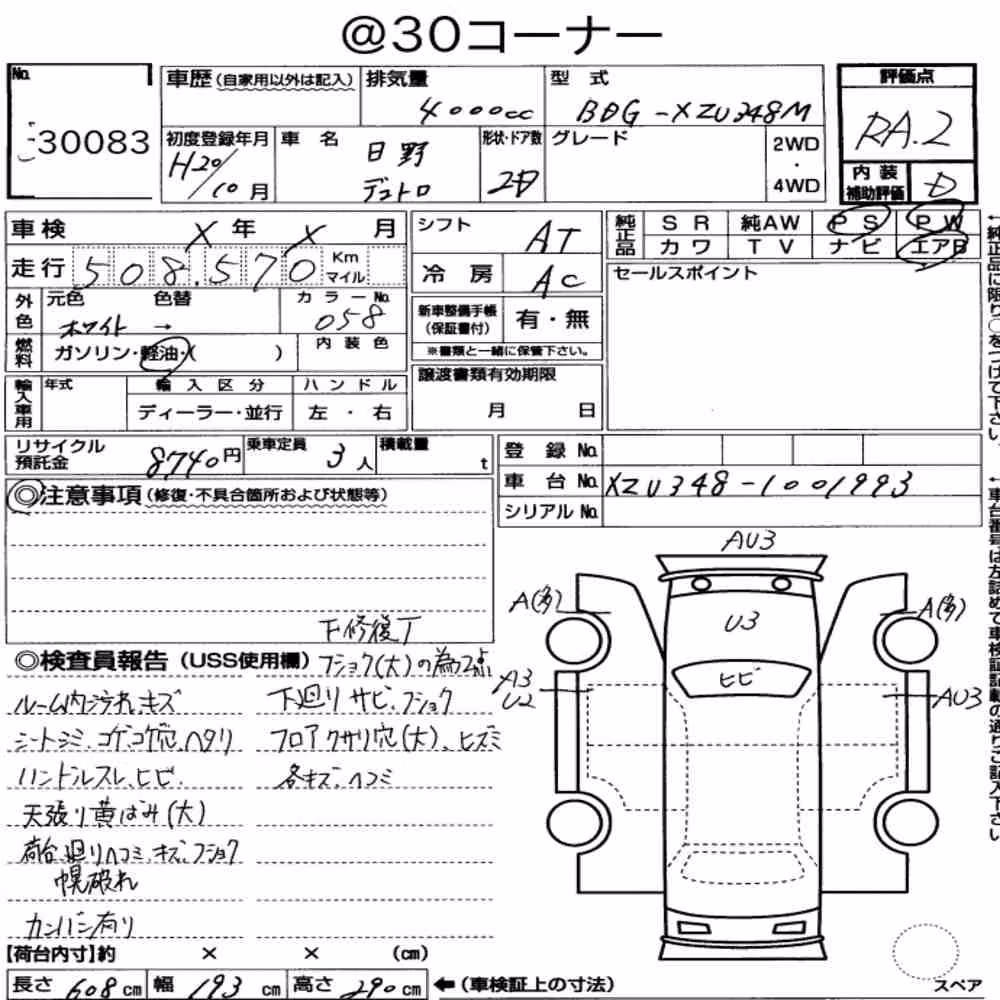 @30コーナー
No.
30083
車歴(自家用以外は記入)
排気量
4000cc
型式
BDG-XZU348M
評価点
RA.2
内装補助評価
D
初度登録年月
H20/10月
車名
日野
デュトロ
形状・ドア数
2D
グレード
2WD
・
4WD
車検 X年 X月
走行 508,570 Km マイル
外色
元色 色替
ホワイト →
カラーNo.
058
燃料
ガソリン・軽油・( )
内装色
輸入車用
年式
輸入区分
ディーラー・並行
ハンドル
左・右
シフト
AT
冷房
AC
新車整備手帳(保証書付)
有・無
※書類と一緒に保管下さい。
譲渡書類有効期限
月 日
純正品
SR 純AW PS PW
カワ TV ナビ エアB
セールスポイント
←純正品に限り○をつけて下さい。
リサイクル預託金
8740円
乗車定員
3人
積載量
t
登録No.
車台No. XZU348-1001993
シリアルNo.
←車台番号は左詰めで車検証記載の通りご記入下さい
◎注意事項(修復・不具合箇所および状態等)
下修復了
◎検査員報告(USS使用欄)
フショク(大)の為
ルーム内汚れ、キズ
シートシミ、コゲ、コゲ穴、ヘタリ
ハンドルスレ、ヒビ
天張り黄ばみ(大)
荷台廻りヘコミ、キズ、フショク
幌破れ
カンバン有り
下廻りサビ、フショク
フロアクサリ穴(大)、ヒズミ
各キズ、ヘコミ
AU3
A(多)
A(多)
U3
ヒビ
A3
U2
AU3
【荷台内寸】約 × × (cm)
長さ 608cm 幅 193cm 高さ 290cm ←(車検証上の寸法)
スペア